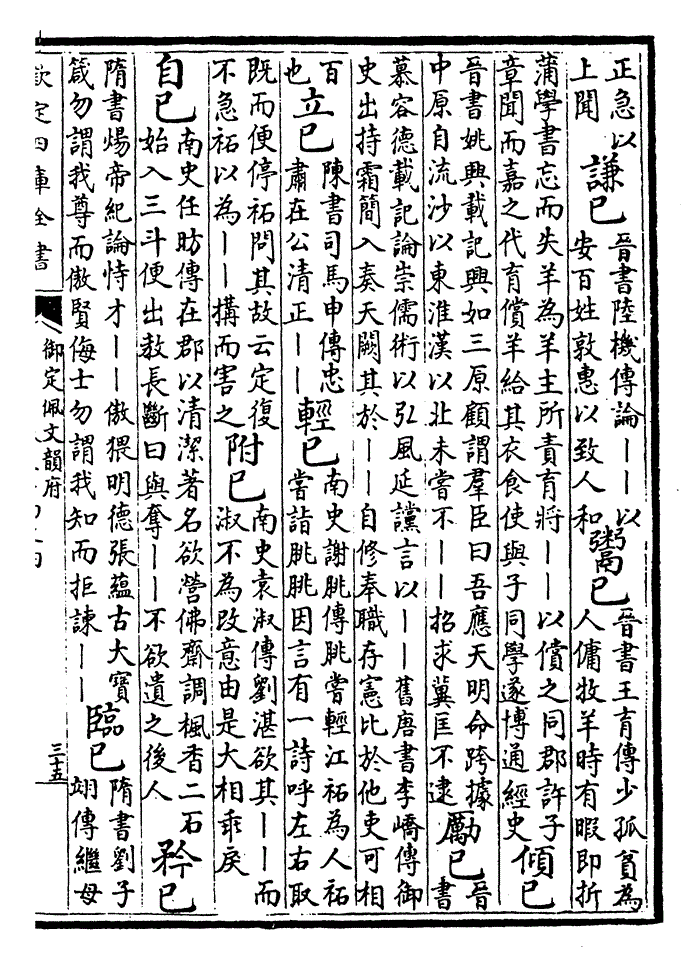 正急以
上聞
謙已
晉書陸機傳論丨丨以
安百姓敦惠以致人和
鬻已
晉書王育傳少孤貧為
人傭牧羊時有暇即折
蒲學書忘而失羊為羊主所責育將丨丨以償之同郡許子
章聞而嘉之代育償羊給其衣食使與子同學遂博通經史
傾已
晉書姚興載記興如三原顧謂羣臣曰吾應天明命跨據
中原自流沙以東淮漢以北未嘗不丨丨招求冀匡不逮
勵已
晉
書
慕容德載記論崇儒術以弘風延讜言以丨丨舊唐書李嶠傳御
史出持霜簡入奏天闕其於丨丨自修奉職存憲比於他吏可相
百
也
立已
陳書司馬申傳忠
肅在公清正丨丨
輕已
南史謝朓傳朓嘗輕江祏為人祏
嘗詣朓朓因言有一詩呼左右取
既而便停祏問其故云定復
不急祏以為丨丨搆而害之
附已
南史袁淑傳劉湛欲其丨丨而
淑不為改意由是大相乖戾
自已
南史任昉傳在郡以清潔著名欲營佛齋調楓香二石
始入三斗便出教長斷曰與奪丨丨不欲遺之後人
矜已
隋書煬帝紀論恃才丨丨傲猥明德張蘊古大寶
箴勿謂我尊而傲賢侮士勿謂我知而拒諫丨丨
臨已
隋書劉子
翊傳繼母
欽定四庫全書
御定佩文韻府
三十五